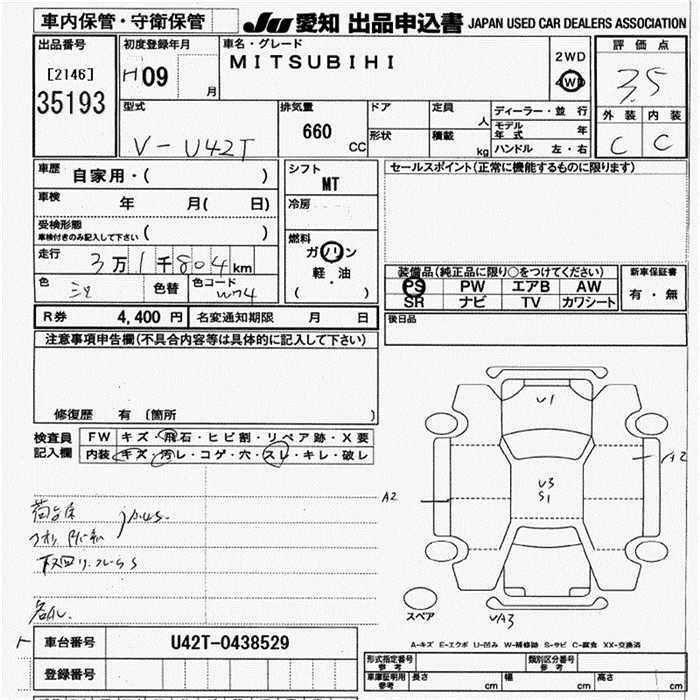 車内保管・守衛保管
JU 愛知 出品申込書 JAPAN USED CAR DEALERS ASSOCIATION
出品番号
[2146]
35193
初度登録年月
H 09
月
車名・グレード
MITSUBIHI
2WD
4WD
評価点
3.5
外装 内装
C C
型式
V-U42T
排気量
660
CC
ドア
形状
定員
人
積載
kg
ディーラー・並行
モデル年式 年
ハンドル 左・右
車歴
自家用・( )
車検
年 月( 日)
受検形態
車検付きのみ記入して下さい ( )
走行
3万1千804km
色
色替
色コード
W74
シフト
MT
冷房
燃料
ガソリン
軽・油
( )
セールスポイント(正常に機能するものに限ります)
装備品(純正品に限り○をつけてください)
PS PW エアB AW
SR ナビ TV カワシート
新車保証書
有・無
R券 4,400 円 名変通知期限 月 日
後日品
注意事項申告欄(不具合内容等は具体的に記入して下さい)
修復歴 有 〔箇所 〕
検査員記入欄
FW キズ・飛石・ヒビ割・リペア跡・X要
内装 キズ・汚レ・コゲ・穴・スレ・キレ・破レ
U1
A2
U3
S1
A2
UA3
スペア
A-キズ E-エクボ U-凹み W-補修跡 S-サビ C-腐食 XX-交換済
車台番号 U42T-0438529
登録番号
形式指定番号 参考
類別区分番号 参考
車庫証明用 参考
長さ cm 幅 cm 高さ cm